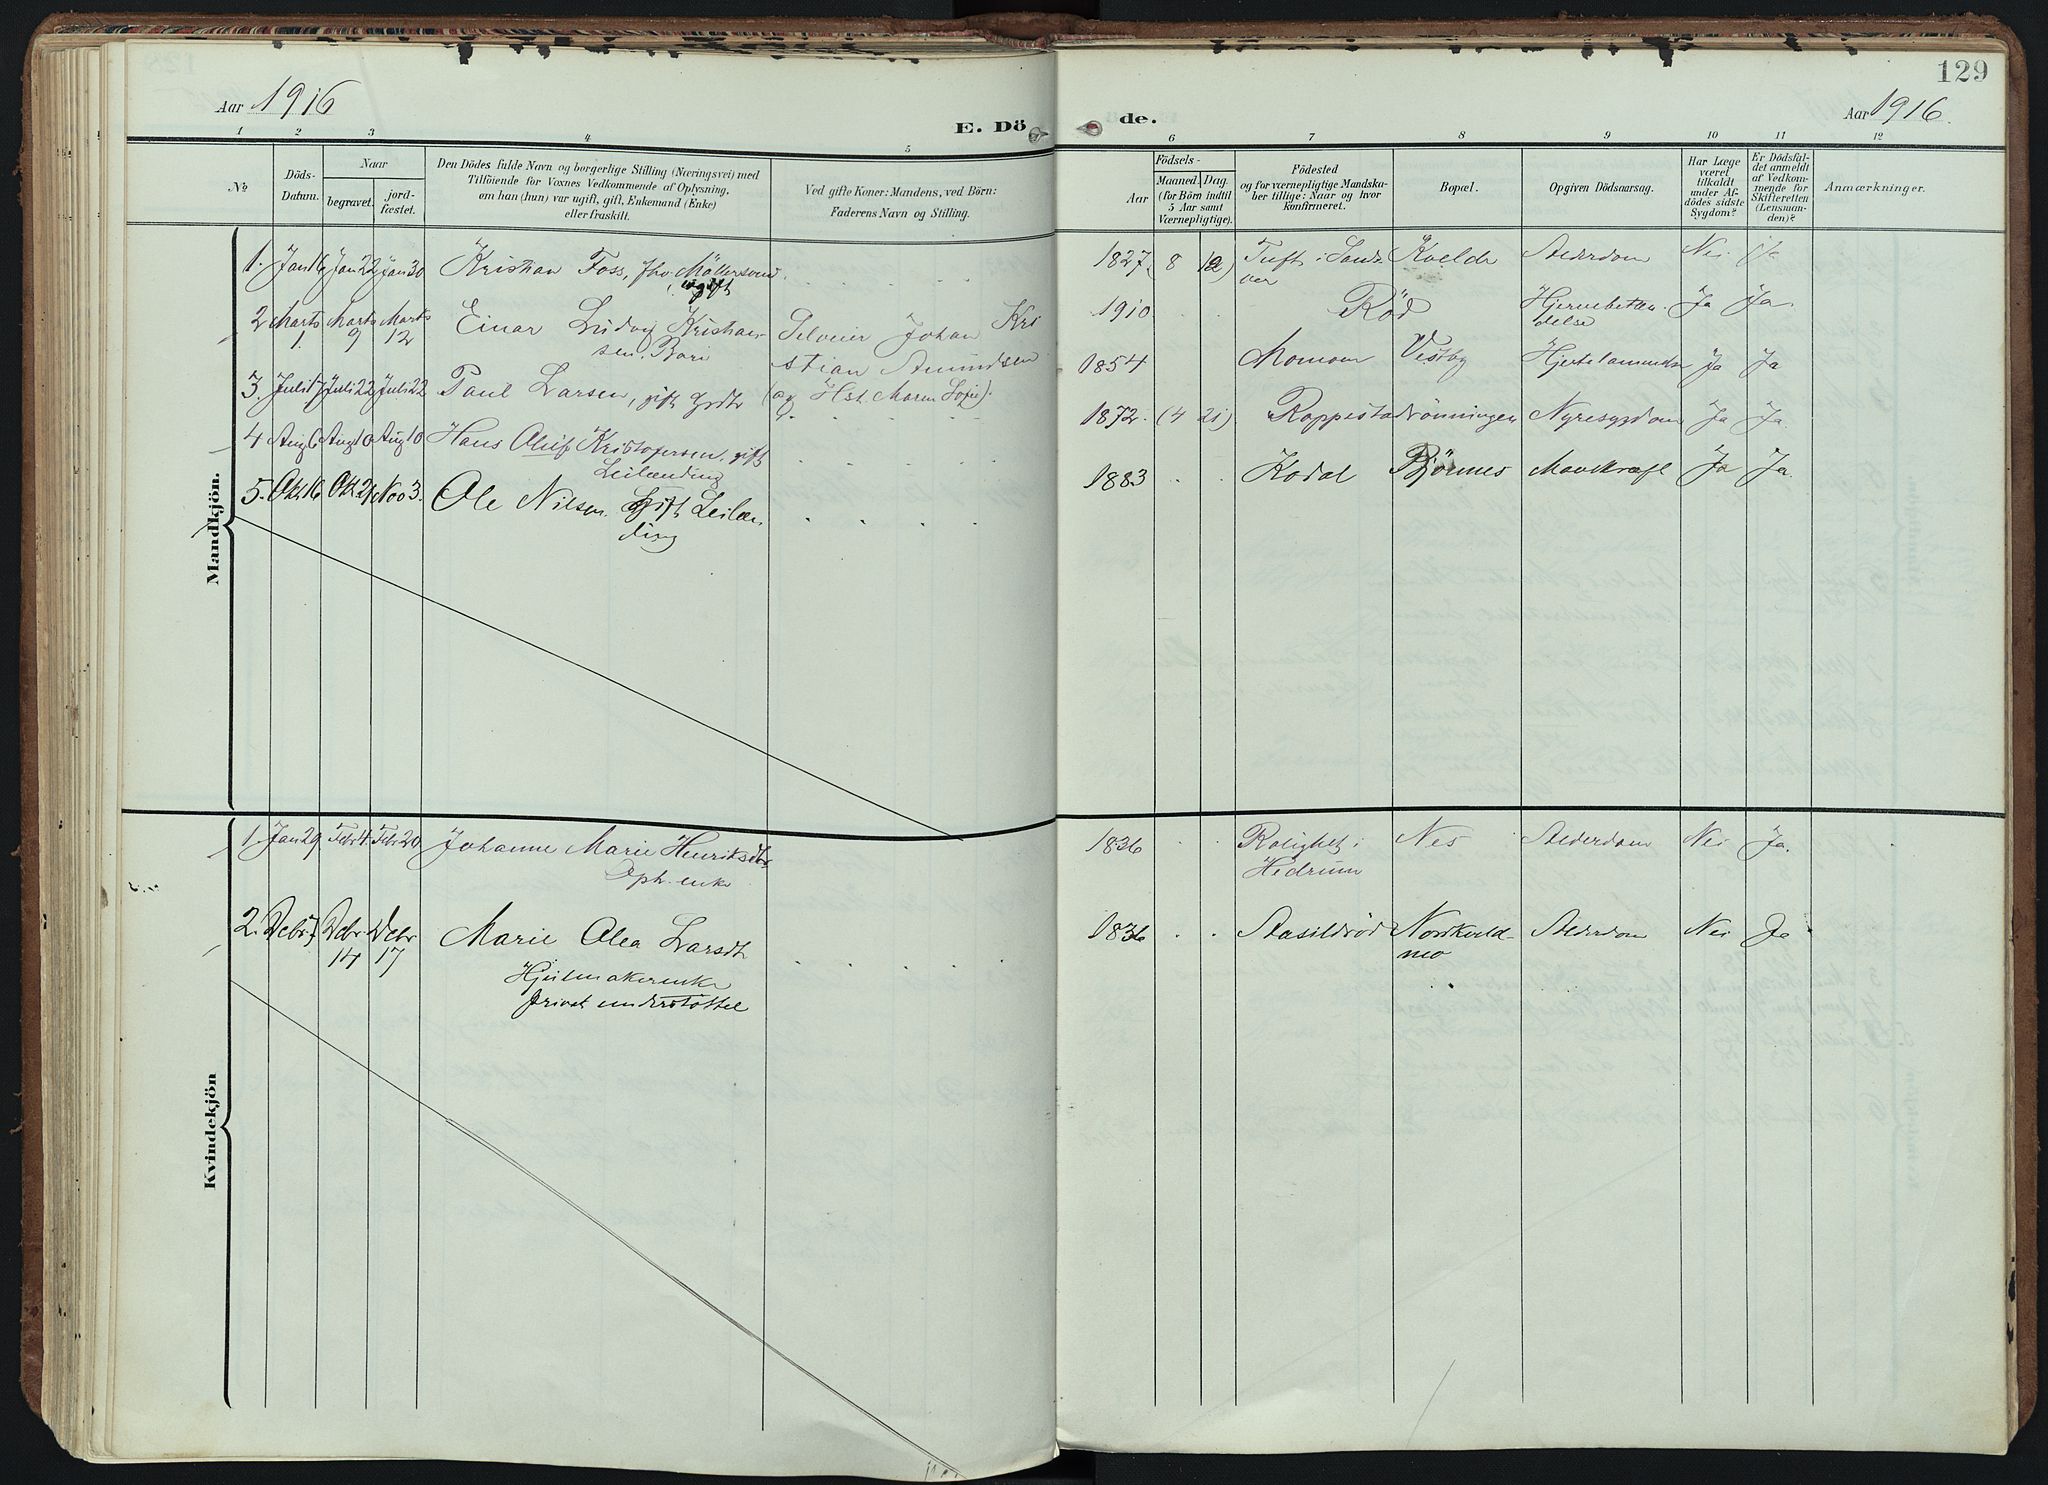 129
Aar 1916
E. Dö
de.
Aar 1916.
1 2 3 4 5 6 7 8 9 10 11 12
No
Döds-
Datum.
Naar
begravet.
jord-
fæstet.
Den Dödes fulde Navn og borgerlige Stilling (Næringsvei) med
Tilföiende for Voxnes Vedkommende af Oplysning,
om han (hun) var ugift, gift, Enkemand (Enke)
eller fraskilt.
Ved gifte Koner: Mandens, ved Börn:
Faderens Navn og Stilling.
Födsels-
Aar
Maaned. Dag.
(for Börn indtil
5 Aar samt
Værnepligtige).
Födested
og for værnepligtige Mandska-
ber tillige: Naar og hvor
konfirmeret.
Bopæl.
Opgiven Dödsaarsag.
Har Læge
været
tilkaldt
under Af-
dödes sidste
Sygdom?
Er Dödsfal-
det anmeldt
af Vedkom-
mende for
Skifteretten
(Lensman-
den)?
Anmærkninger.
Mandkjön.
1. Jan 16 Jan 22 Jan 30 Kristian Foss, fhv. Möllersvend 1827 (8 12) Tuft i Sands Kvelde Alderdom Nei Ja
ugift
vær
2 Marts Marts Marts Einar Ludvig Kristian- Johan Kri 1910 Röd Hjernebetæn Ja Ja
1 9 12
sen, Barn
stian Amundsen
delse
3. Juli 17 Juli 22 Juli 22 Paul Larsen, gift (og Hst. Maren Sofie). 1854 Vestby Ja Ja
4 Aug 6 Aug 10 Aug 10 Hans Oluf Kristofersen, gift 1872. (4 21) Nyresygdom Ja Ja
Leilænding
5. Okt 16 Okt 21 Nov 3. Ole Nilsen. Gift Leilæn 1883 Kodal Bjørnnes Mavekræft Ja Ja
ding
Kvindekjön
1. Jan 29 Febr 4 Febr 20 Johanne Marie Henriksdtr 1836 Rolighet i Nes Alderdom Nei Ja.
Oph. enke
Hedrum
2. Debr 7 Debr Debr Marie Olea Larsdt 1836 Aasildröd Nordkveld- Alderdom Nei Ja
14 17
mo
Hjulmakerenke
privat understöttet